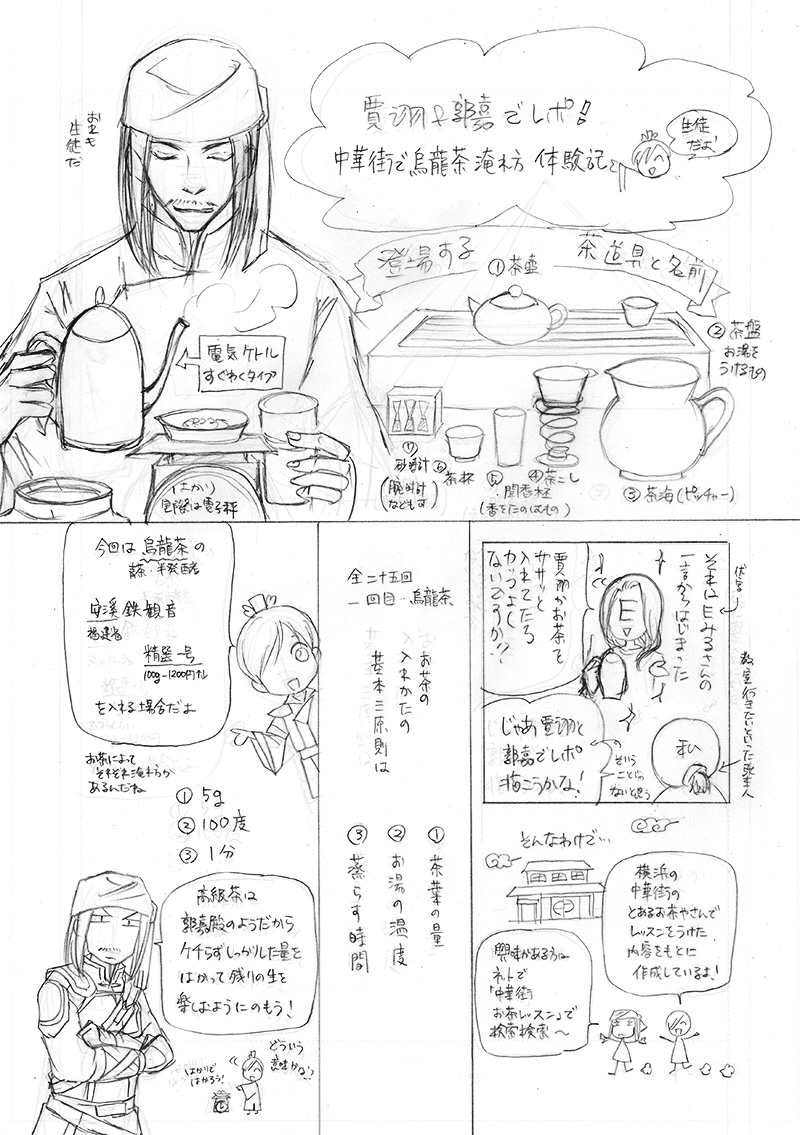 賈詡と郭嘉でレポ!
中華街で烏龍茶淹れ方 体験記
生徒
だよ!
おれも
生徒だ
登場する
茶道具と名前
①茶壺
②茶盤
お湯を
うけるもの
電気ケトル
すぐわくタイプ
③茶海(ピッチャー)
④茶こし
⑤・聞香杯
(香をたのしむもの)
⑥茶杯
⑦砂時計
(腕時計
なども可)
(はかり)
実際は電子秤
それはEみるさんの
一言からはじまった
伏字
賈詡がお茶を
ササッと
入れてたら
かっこよく
ないですか!?
教室行きたいといった張本人
私
じゃあ賈詡と
郭嘉でレポ
描こうかな!
そういう
ことじゃ
ないと思う
そんなわけで…
横浜の
中華街の
とあるお茶やさんで
レッスンをうけた
内容をもとに
作成しているよ!
興味がある方は
ネットで
「中華街
お茶レッスン」で
検索検索〜
全二十五回
一回目…烏龍茶
お茶の
入れかたの
基本三原則は
①茶葉の量
②お湯の温度
③蒸らす時間
今回は烏龍茶の
青茶・半発酵
安溪鉄観音
福建省
精盤一号
100g-1200円ナリ
を入れる場合だよ
お茶によって
それぞれ淹れ方が
あるんだね
①5g
②100度
③1分
高級茶は
郭嘉殿のようだから
ケチらずしっかりした量を
はかって残りの生を
楽しむようにのもう!
どういう
意味かな?
はかりで
はかろう!